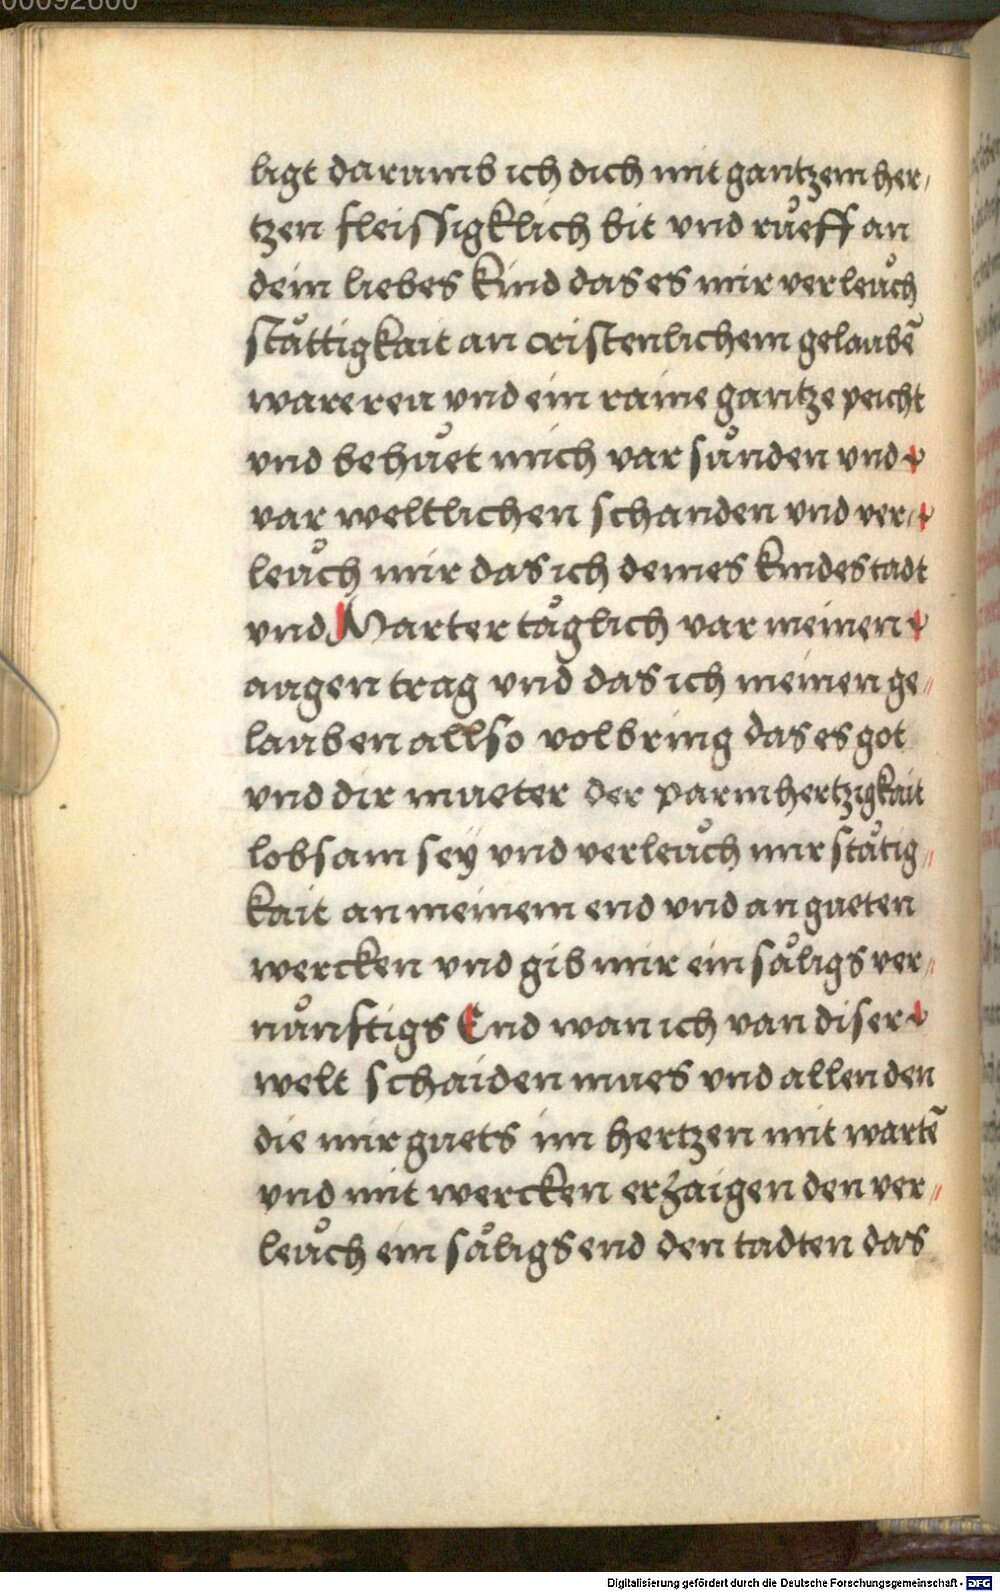 00092600
ligt darumb ich dich mit gantzem her,
tzen fleissigklich bit vnd růeff an
dein liebes kind das es mir verleůch
ståttigkait an cristenlichem gelaubē
warer reu vnd ein raine gantze peicht
vnd behůet mich var sůnden vnd
var weltlichen schanden vnd ver,
leůch mir das ich deines kindes tadt
vnd Marter tåglich var meinen
augen trag vnd das ich meinen ge,,
lauben allso volbring das es got
vnd dir mueter der parmhertzigkait
lobsam sey vnd verleůch mir ståtig,,
kait an meinem end vnd an gueten
wercken vnd gib mir ein såligs ver,,
nůnftigs End wan ich van diser
welt schaiden mues vnd allen den
die mir guets im hertzen mit wartē
vnd mit wercken erzaigen den ver,,
leůch ein såligs end den tadten das
Digitalisierung gefördert durch die Deutsche Forschungsgemeinschaft - DFG